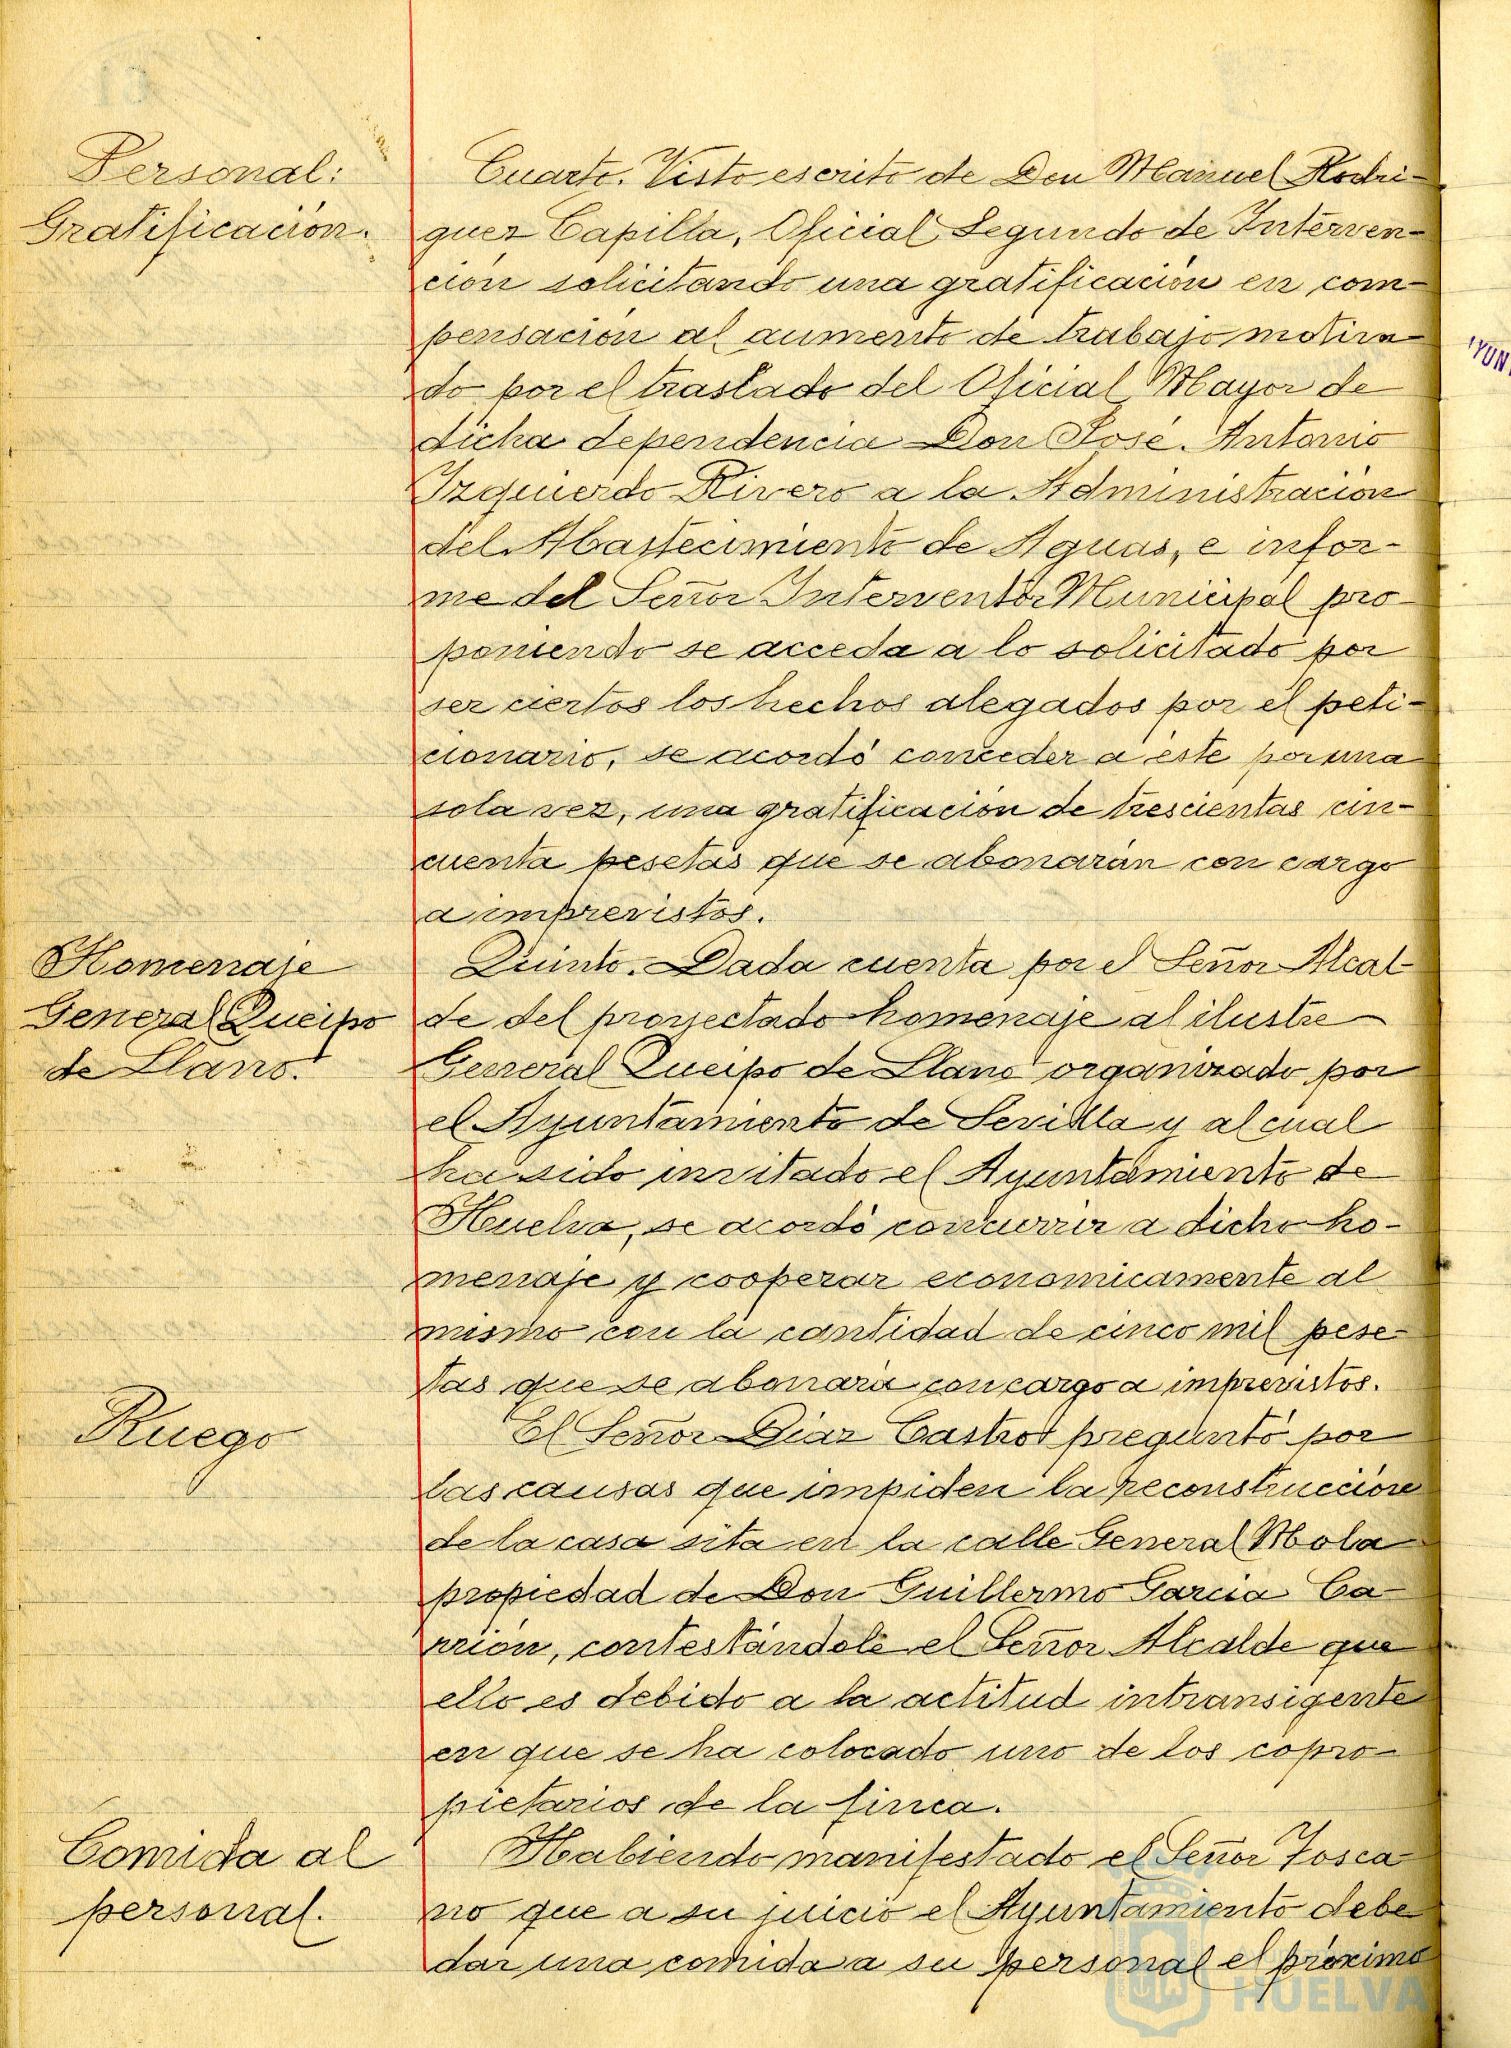 Personal:
Gratificación.
Cuarto. Visto escrito de Don Manuel Rodri-
guez Capilla, Oficial Segundo de Interven-
ción solicitando una gratificación en com-
pensación al aumento de trabajo motiva
do por el traslado del Oficial Mayor de
dicha dependencia Don José Antonio
Izquierdo Rivero a la Administración
del Abastecimiento de Aguas, e infor-
me del Señor Interventor Municipal pro
poniendo se acceda a lo solicitado por
ser ciertos los hechos alegados por el peti-
cionario, se acordó conceder a éste por una
sola vez, una gratificación de trescientas cin-
cuenta pesetas que se abonarán con cargo
a imprevistos.
Homenaje
General Queipo
de Llano.
Quinto. Dada cuenta por el Señor Alcal
de del proyectado homenaje al ilustre
General Queipo de Llano organizado por
el Ayuntamiento de Sevilla y al cual
ha sido invitado el Ayuntamiento de
Huelva, se acordó concurrir a dicho ho-
menaje y cooperar economicamente al
mismo con la cantidad de cinco mil pese-
tas que se abonará con cargo a imprevistos.
Ruego
El Señor Diaz Castro preguntó por
las causas que impiden la reconstrucción
de la casa sita en la calle General Mola
propiedad de Don Guillermo Garcia Ca-
rrión, contestándole el Señor Alcalde que
ello es debido a la actitud intransigente
en que se ha colocado uno de los copro-
pietarios de la finca.
Comida al
personal.
Habiendo manifestado el Señor Tosca
no que a su juicio el Ayuntamiento debe
dar una comida a su personal el próximo
YUN
HUELVA